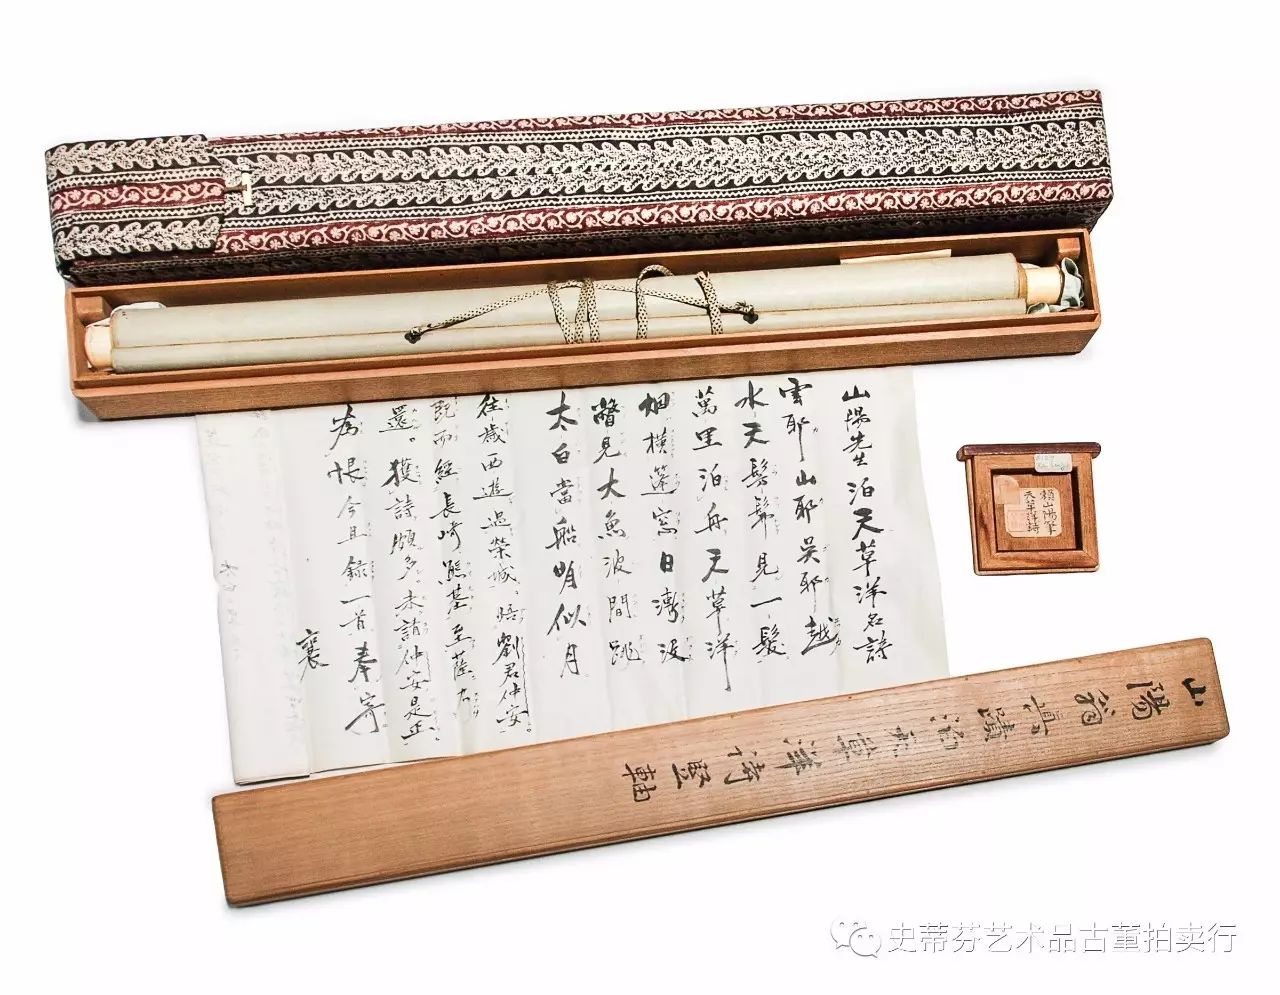 山陽先生泊天草洋名詩
雲耶山耶吳耶越
水天髣髴見一髮
萬里泊舟天草洋
烟橫蓬窓日漸没
瞥見大魚波間跳
太白當船明似月
往歲西遊過榮城。晤劉君仲安。
既而經長崎熊基至薩
還。獲詩頗多。未請仲安是正。
為恨今且録一首奉寄
襄
賴山陽筆
天草洋詩
山陽翁真蹟泊天草洋詩竪軸
史蒂芬艺术品古董拍卖行